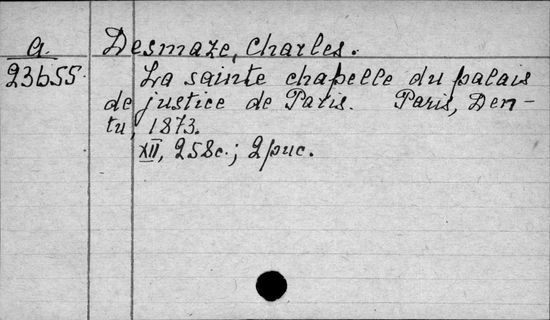 a. Desmaze, Charles.
23655. La sainte chapelle du palais
de justice de Paris. Paris, Den-
tu, 1873.
XII, 258c.; 2 рис.